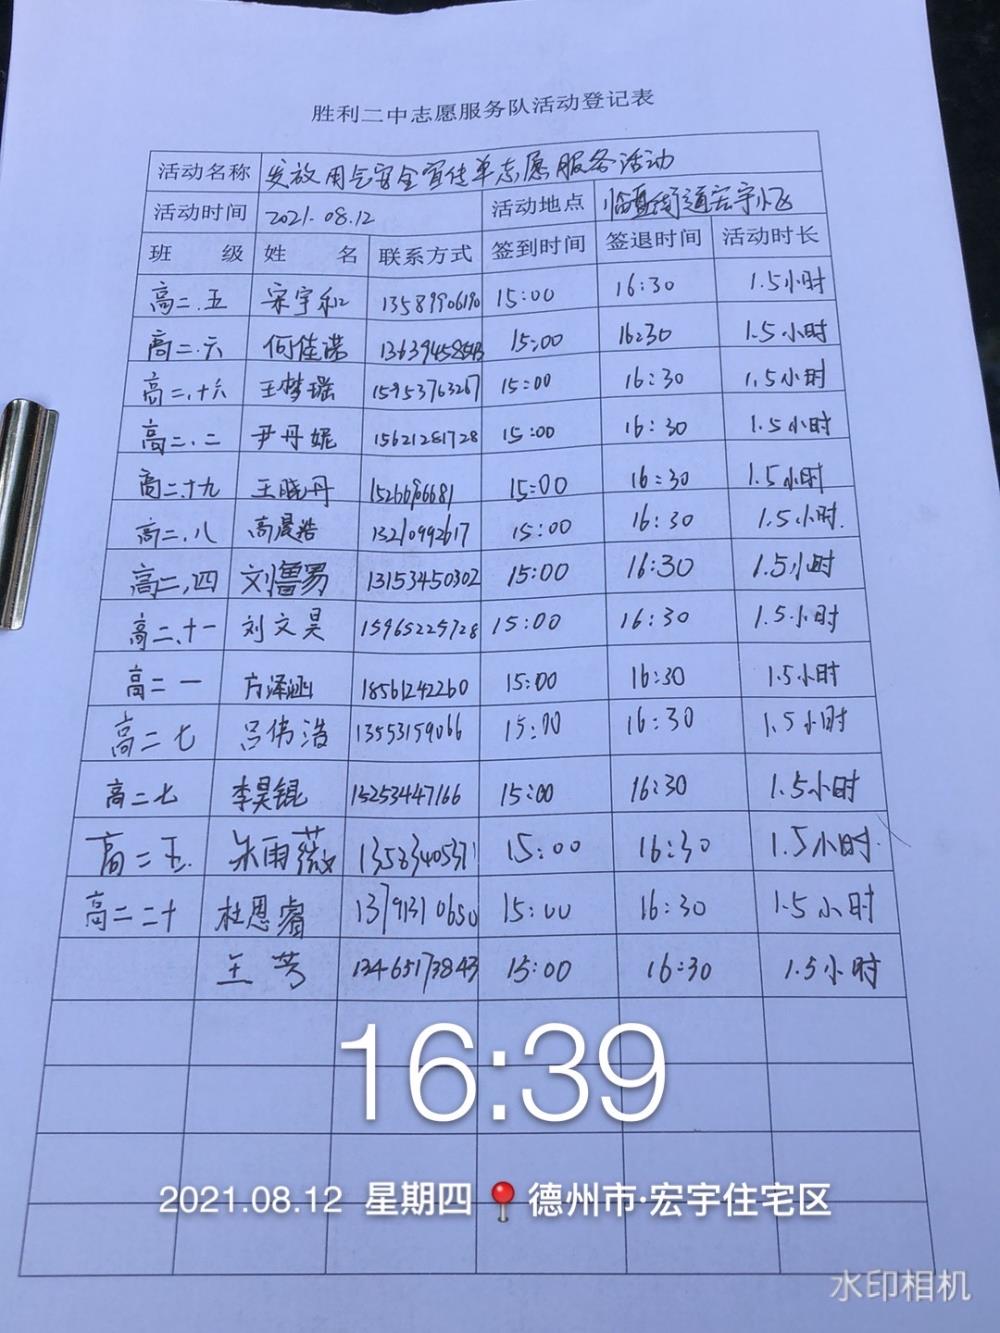 胜利二中志愿服务队活动登记表
活动名称 发放用气安全宣传单志愿服务活动
活动时间 2021.08.12 活动地点 临邑街道宏宇小区
班 级 姓 名 联系方式 签到时间 签退时间 活动时长
高二.五 宋宇和 13589906190 15:00 16:30 1.5小时
高二.六 何佳诺 15:00 16:30 1.5小时
高二.十六 王梦瑶 15953763267 15:00 16:30 1.5小时
高二.二 尹丹妮 15621281728 15:00 16:30 1.5小时
高二.十九 王晓丹 15:00 16:30 1.5小时
高二.八 高晨浩 13210992617 15:00 16:30 1.5小时.
高二.四 刘鲁易 13153450302 15:00 16:30 1.5小时
高二.十一 刘文昊 15965225728 15:00 16:30 1.5小时
高二一 方泽涵 18561242260 15:00 16:30 1.5小时
高二七 吕伟浩 13553159066 15:00 16:30 1.5小时
高二七 李昊锟 15253447166 15:00 16:30 1.5小时
高二五. 朱雨薇 13583405371 15:00 16:30 1.5小时.
高二二十 杜恩睿 13791310650 15:00 16:30 1.5小时
王芳 13465173843 15:00 16:30 1.5小时
16:39
2021.08.12 星期四 德州市·宏宇住宅区
水印相机